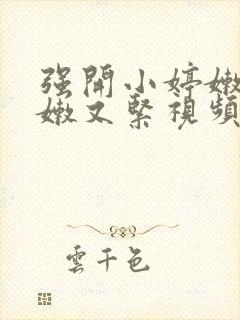 强開小婷嫩
嫩又緊視頻
雲千色